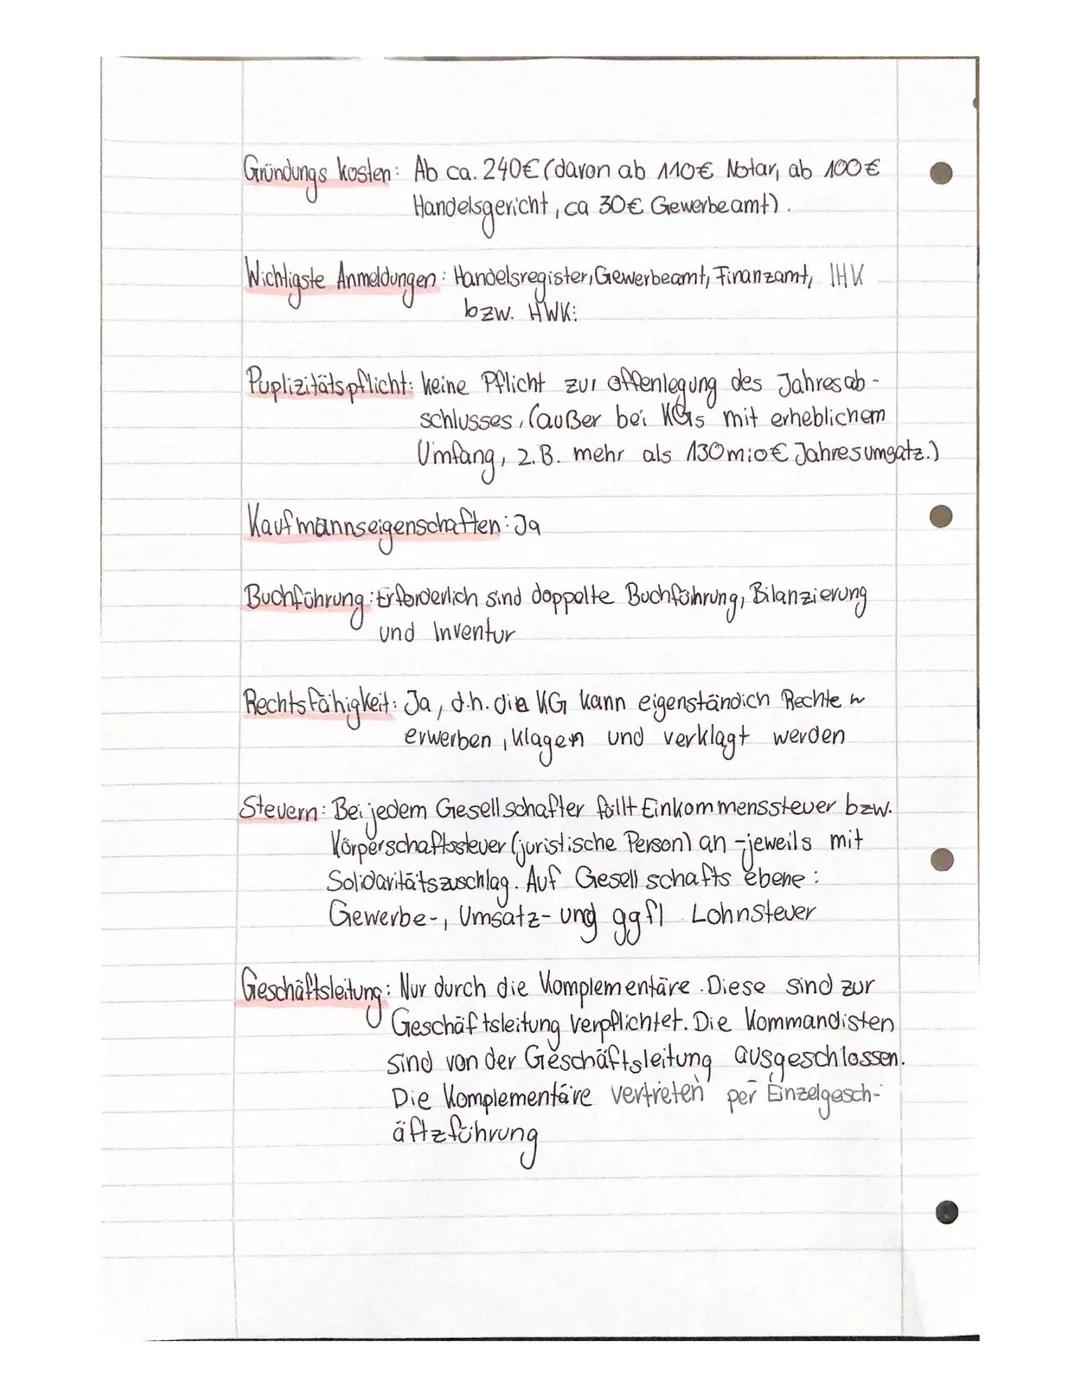 Gründungs kosten: Ab ca. 240€ (davon ab 110€ Notar, ab 100€
Handelsgericht, ca 30€ Gewerbeamt).
Wichtigste Anmeldungen: Handelsregister, Gewerbeamt, Finanzamt, IHK
bzw. HWK:
Puplizitätspflicht: keine Pflicht zur Offenlegung des Jahresab-
schlusses, (außer bei KGs mit erheblichem
Umfang, z.B. mehr als 130mio€ Jahresumsatz.)
Kaufmannseigenschaften: Ja
Buchführung: Erforderlich sind doppolte Buchführung, Bilanzierung
und Inventur
Rechtsfähigkeit: Ja, d.h. die KG kann eigenständich Rechte
erwerben, klagen und verklagt werden
Steuern: Bei jedem Gesellschafter fällt Einkommenssteuer bzw.
Körperschaftssteuer (juristische Person) an - jeweils mit
Solidaritätszuschlag. Auf Gesellschafts ebene:
Gewerbe-, Umsatz- und ggfl. Lohnsteuer
Geschäftsleitung: Nur durch die Komplementäre. Diese sind zur
Geschäftsleitung verpflichtet. Die Kommandisten
sind von der Geschäftsleitung ausgeschlossen.
Die Komplementäre vertreten per Einzelgesch-
äftzführung